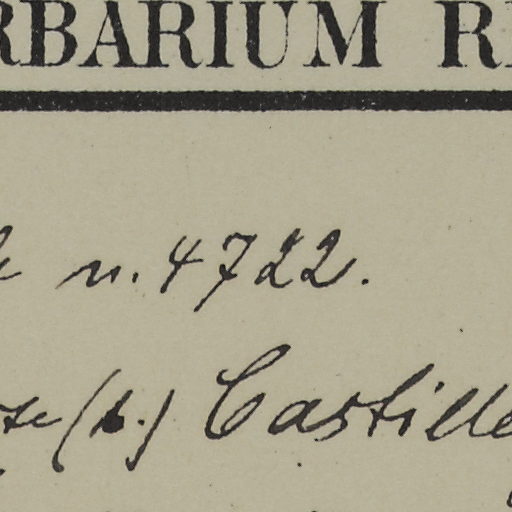 RBARIUM R
n. 4722.
(b.) Castille